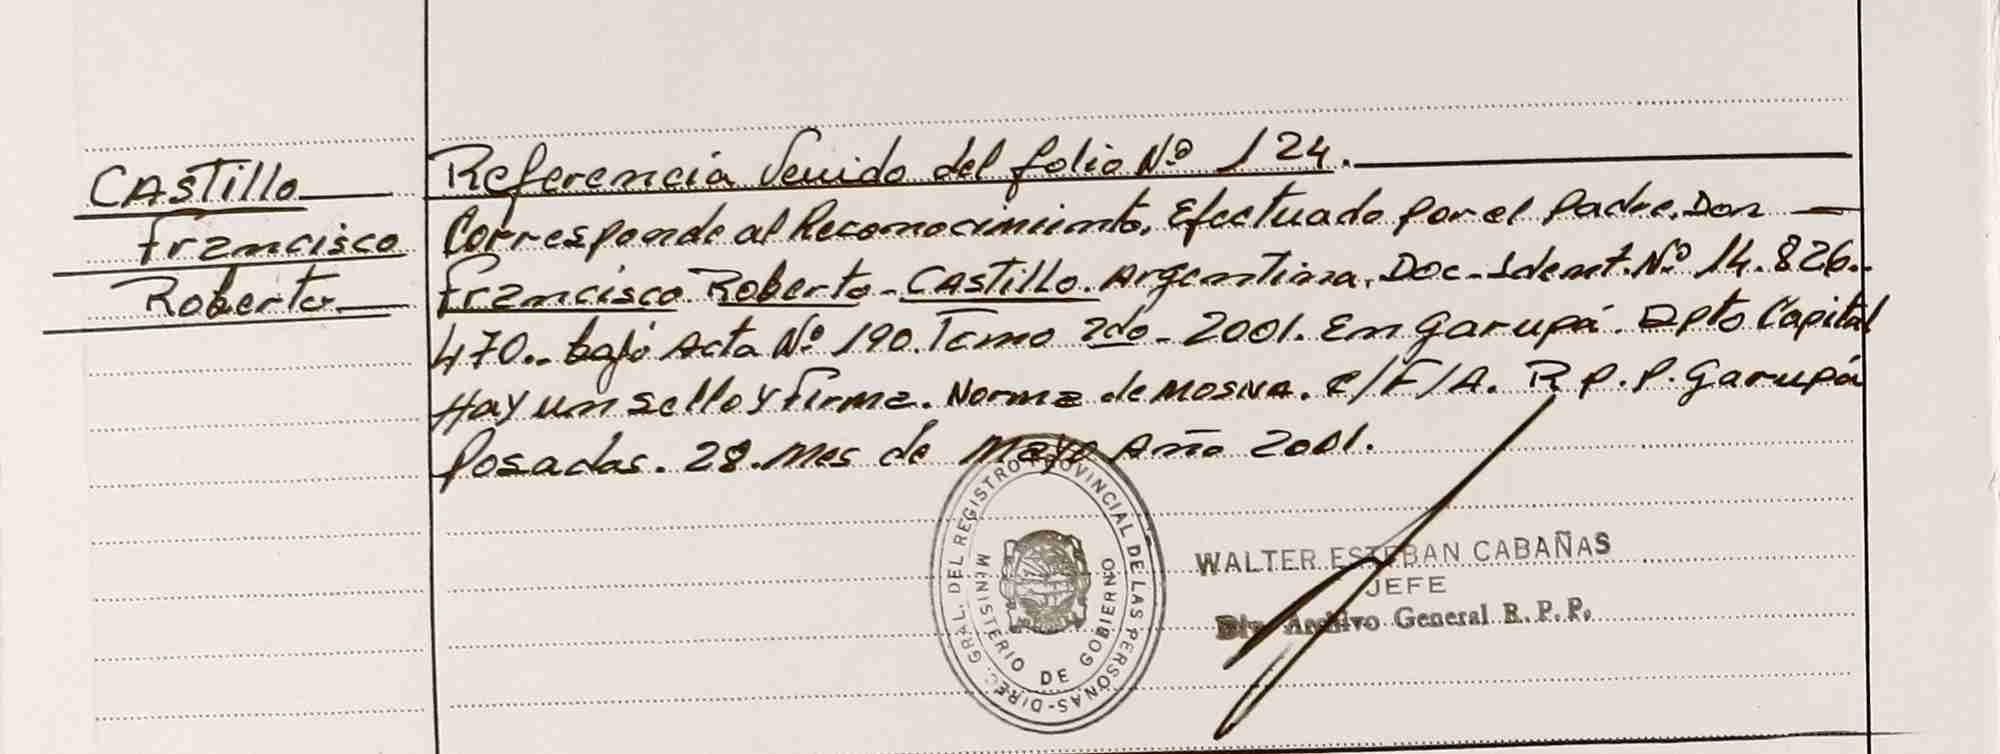 CASTILLO
Francisco
Roberto
Referencia Venido del folio Nº 124.
Corresponde al Reconocimiento, Efectuado por el Padre, Don
Francisco Roberto - CASTILLO. Argentina, Doc - Ident. Nº 14.826..
470.. bajo Acta Nº 190. Tomo 2do - 2001. En Garupá. Dpto Capital
Hay un sello y Firma. Norma de MOSNA. E/F/A. R.P.P. Garupá
Posadas. 28. Mes de Mayo Año 2001.
DIREC. GRAL. DEL REGISTRO PROVINCIAL DE LAS PERSONAS-
MINISTERIO DE GOBIERNO
WALTER ESTEBAN CABAÑAS
JEFE
Div. Archivo General R. P. P.